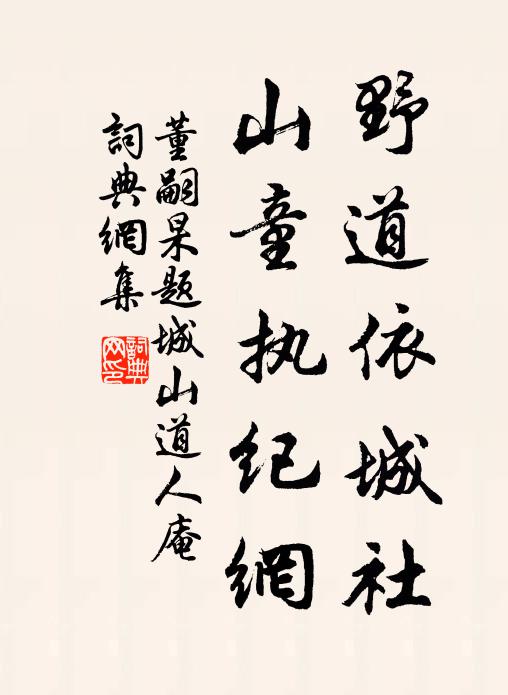 野道依城社
山童执纪網
董嗣杲题城山道人庵
詞典網集
詞典网印